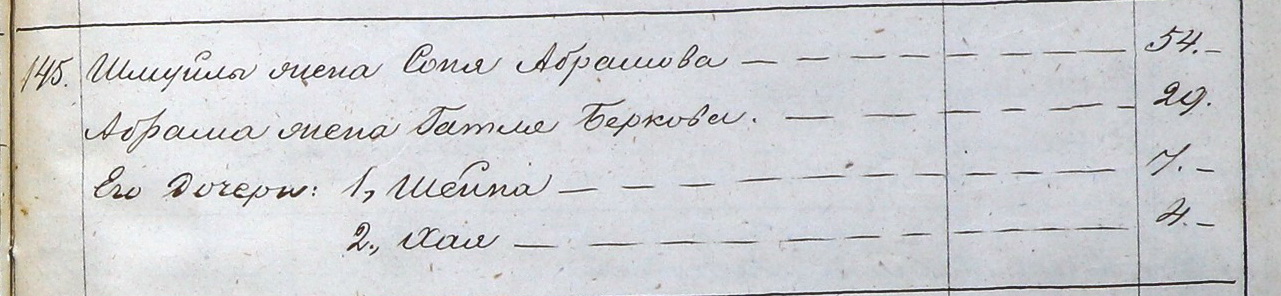 145. Шмуйлы жена Соня Абрамова — — — — — — 54.-
Абрама жена Гатля Беркова. — — — — — 29.
Его дочери: 1, Шейна — — — — — — — — 7.-
2., Хая — — — — — — — — 4.-